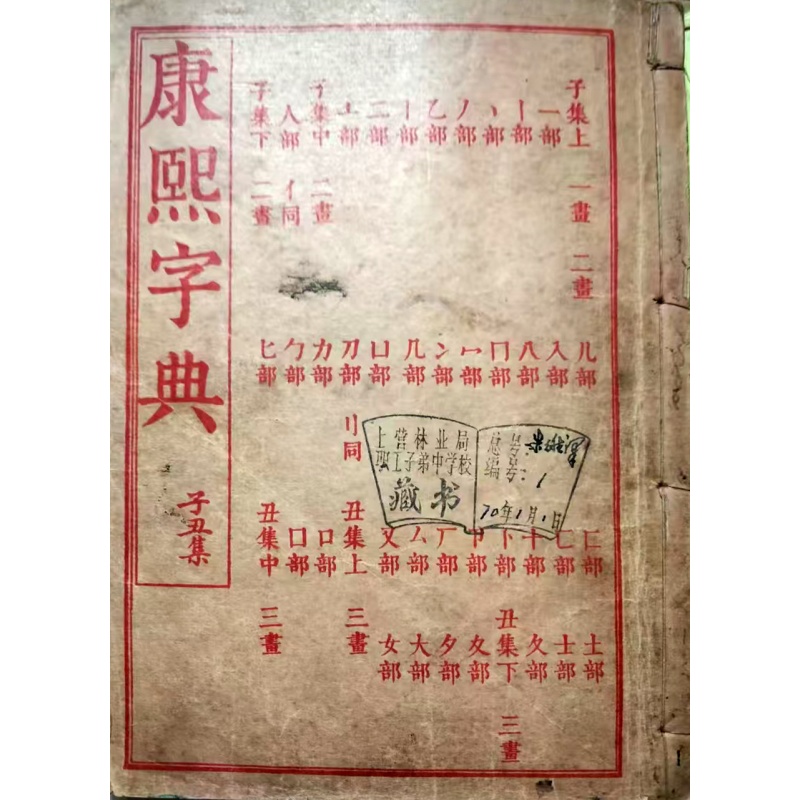 康熙字典
子丑集
子集上 一畫 二畫
一部
丨部
丶部
丿部
乙部
亅部
二部
亠部
子集中 二畫
人部 亻同
子集下 二畫
儿部
入部
八部
冂部
冖部
冫部
几部
凵部
刀部 刂同
力部
勹部
匕部
匚部
匸部
十部
卜部
卩部
厂部
厶部
又部
丑集上 三畫
口部
囗部
丑集中 三畫
土部
士部
夂部
丑集下 三畫
夊部
夕部
大部
女部
上营林业局
职工子弟中学校
藏书
总号
编号:1
70年1月1日